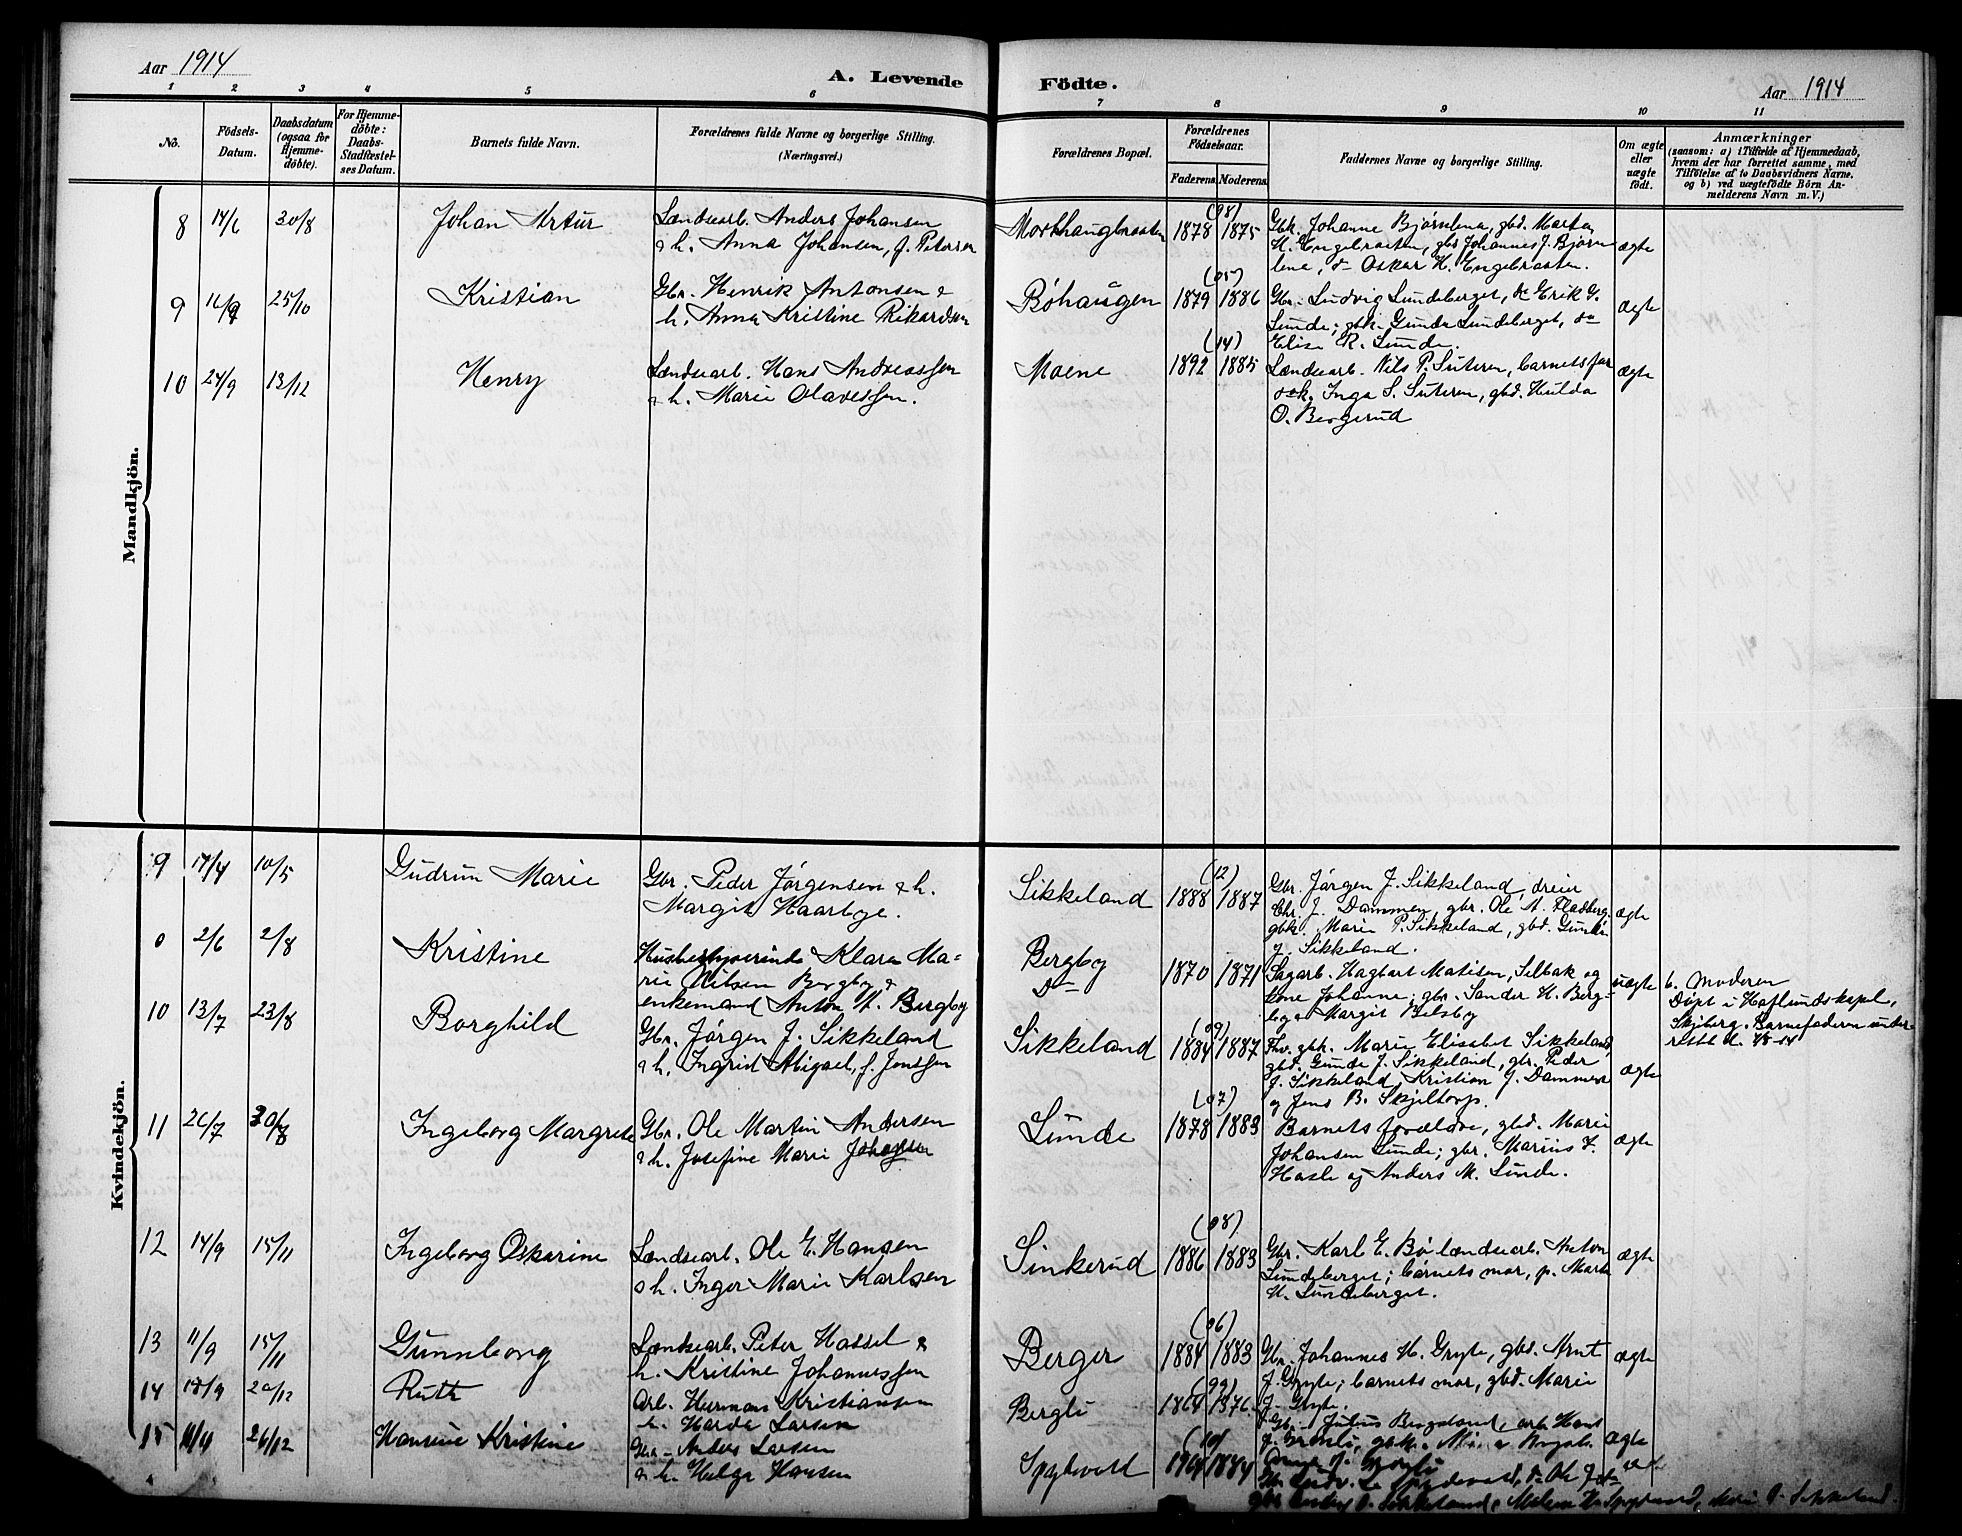 Aar 1914
A. Levende
Födte.
Aar 1914
1 2 3 4 5 6 7 8 9 10 11
No.
Födsels-
Datum.
Daabsdatum
(ogsaa for
Hjemme-
döbte).
For Hjemme-
döbte:
Daabs-
Stadfæstel-
ses Datum.
Barnets fulde Navn.
Forældrenes fulde Navne og borgerlige Stilling.
(Næringsvei.)
Forældrenes Bopæl.
Forældrenes
Födselsaar.
Faderens. Moderens.
Faddernes Navne og borgerlige Stilling.
Om ægte
eller
uægte
födt.
Anmærkninger
(saasom: a) i Tilfælde af Hjemmedaab,
hvem der har forrettet samme, med
Tilföielse af to Daabsvidners Navne,
og b) ved uægtefödte Börn An-
melderens Navn m. V.)
Mandkjön.
8 14/6 30/8 Johan Artur
Landsearb. Anders Johansen
& h. Anna Johansen, f. Petersen
1878 (98) 1875
Gbk. Johanne Bjørnlena, gbd. Marta
H. Engebraaten, gbs Johannes J. Bjørn
lena, do Oskar H. Engebraaten.
ægte
9 25/10 Kristian
Gbr. Henrik Antonsen &
h. Anna Kristine Rikardsen
Bøhaugen 1879 (05) 1886
Gbr. Ludvig Lundeberget, do Erik G.
Lunde; gbk. Gunda Lundeberget, do
Elise R. Lunde.
ægte
10 24/9 13/12 Henry
Landsearb. Hans Andreassen
& h. Marie Olavessen.
Moene 1892 (14) 1885
Landsearb. Nils P. Suteren, barnets far
Inga S. Suteren, gbd. Hulda
O. Bergerud
ægte
Kvindekjön.
9 17/4 10/5 Gudrun Marie
Gbr. Peder Jørgensen & h.
Margit Haarbye.
Sikkeland 1888 (12) 1887
Gbr. Jørgen J. Sikkeland, dreier
Chr. J. Dammen, gbr. Ole A. Fladberg,
gbk. Marie P. Sikkeland, gbd. Gunda
J. Sikkeland.
ægte
0 2/6 2/8 Kristine
Husbestyrerinde Klara Ma-
rie Nilsen Bergby &
enkemand Anton A. Bergby
Bergby
Do
1870 1871
Sagarb. Hagbart Matisen, Selbak og
kone Johanne; gbr. Sander H. Berg-
by & Margit Bilsby
uægte
b. Moderen
Døpt i Hafslunds kapel,
Skjeberg. Barnefaderen under-
rettet d.
10 13/7 23/8 Borghild
Gbr. Jørgen J. Sikkeland
& h. Ingrid Abigael, f. Jensen
Sikkeland 1884 (09) 1887
Fhv. gbk. Marie Elisabet Sikkeland,
gbd. Gunda J. Sikkeland, gbr. Peder
J. Sikkeland, Kristian J. Dammen
og Jens B. Skjeltorp.
ægte
11 26/7 30/8 Ingeborg Margrete
Gbr. Ole Martin Andersen
& h. Josefine Marie Johansen
Lunde 1878 (07) 1883
Barnets forældre, gbd. Marie
Johansen Lunde; gbr. Marius
Hasle og Anders M. Lunde.
ægte
12 14/9 15/11 Ingeborg Oskarine
Landsearb. Ole E. Hansen
& h. Inger Marie Karlsen
Sinkerud 1886 (08) 1883
Gbr. Karl E. Bø landsearb. Anton
Lundeberget; barnets mor, p. Marta
H. Lundeberget.
ægte
13 11/9 15/11 Gunnborg
Landsearb. Peter Hassel &
h. Kristine Johannessen
Berger 1884 (06) 1883
Gbr. Johannes H. Gryte, gbs. Arnt
J. Gryte; barnets mor, gbd. Marie
J. Gryte.
ægte
14 18/9 20/12 Ruth
Arb. Herman Kristiansen
& h. Harda Larsen
Bergli (99) 1876
ægte
15 26/12 Hansine Kristine
Gbr. Anders Larsen
& h. Helga Hansen
Spydevold 1884